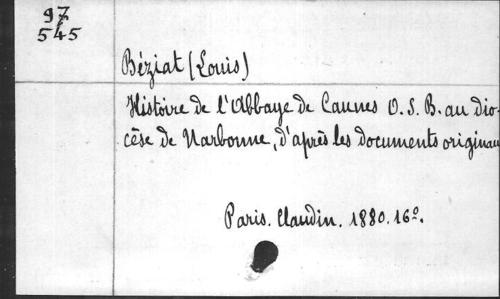 97
545
Béziat (Louis)
Histoire de l'Abbaye de Caunes O. S. B. au dio-
cèse de Narbonne, d'après les documents originau
Paris. Claudin. 1880. 16º.